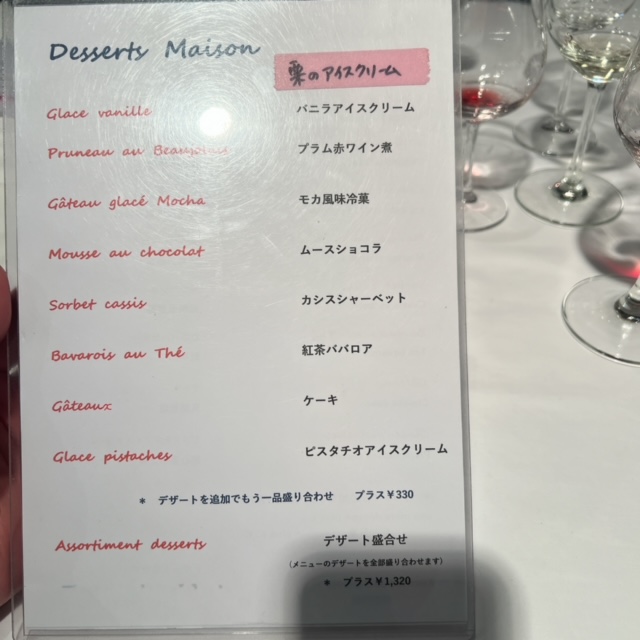 Desserts Maison
栗のアイスクリーム
Glace vanille バニラアイスクリーム
Pruneau au Beaujolais プラム赤ワイン煮
Gâteau glacé Mocha モカ風味冷菓
Mousse au chocolat ムースショコラ
Sorbet cassis カシスシャーベット
Bavarois au Thé 紅茶ババロア
Gâteaux ケーキ
Glace pistaches ピスタチオアイスクリーム
* デザートを追加でもう一品盛り合わせ プラス¥330
Assortiment desserts デザート盛合せ
(メニューのデザートを全部盛り合わせます)
* プラス¥1,320